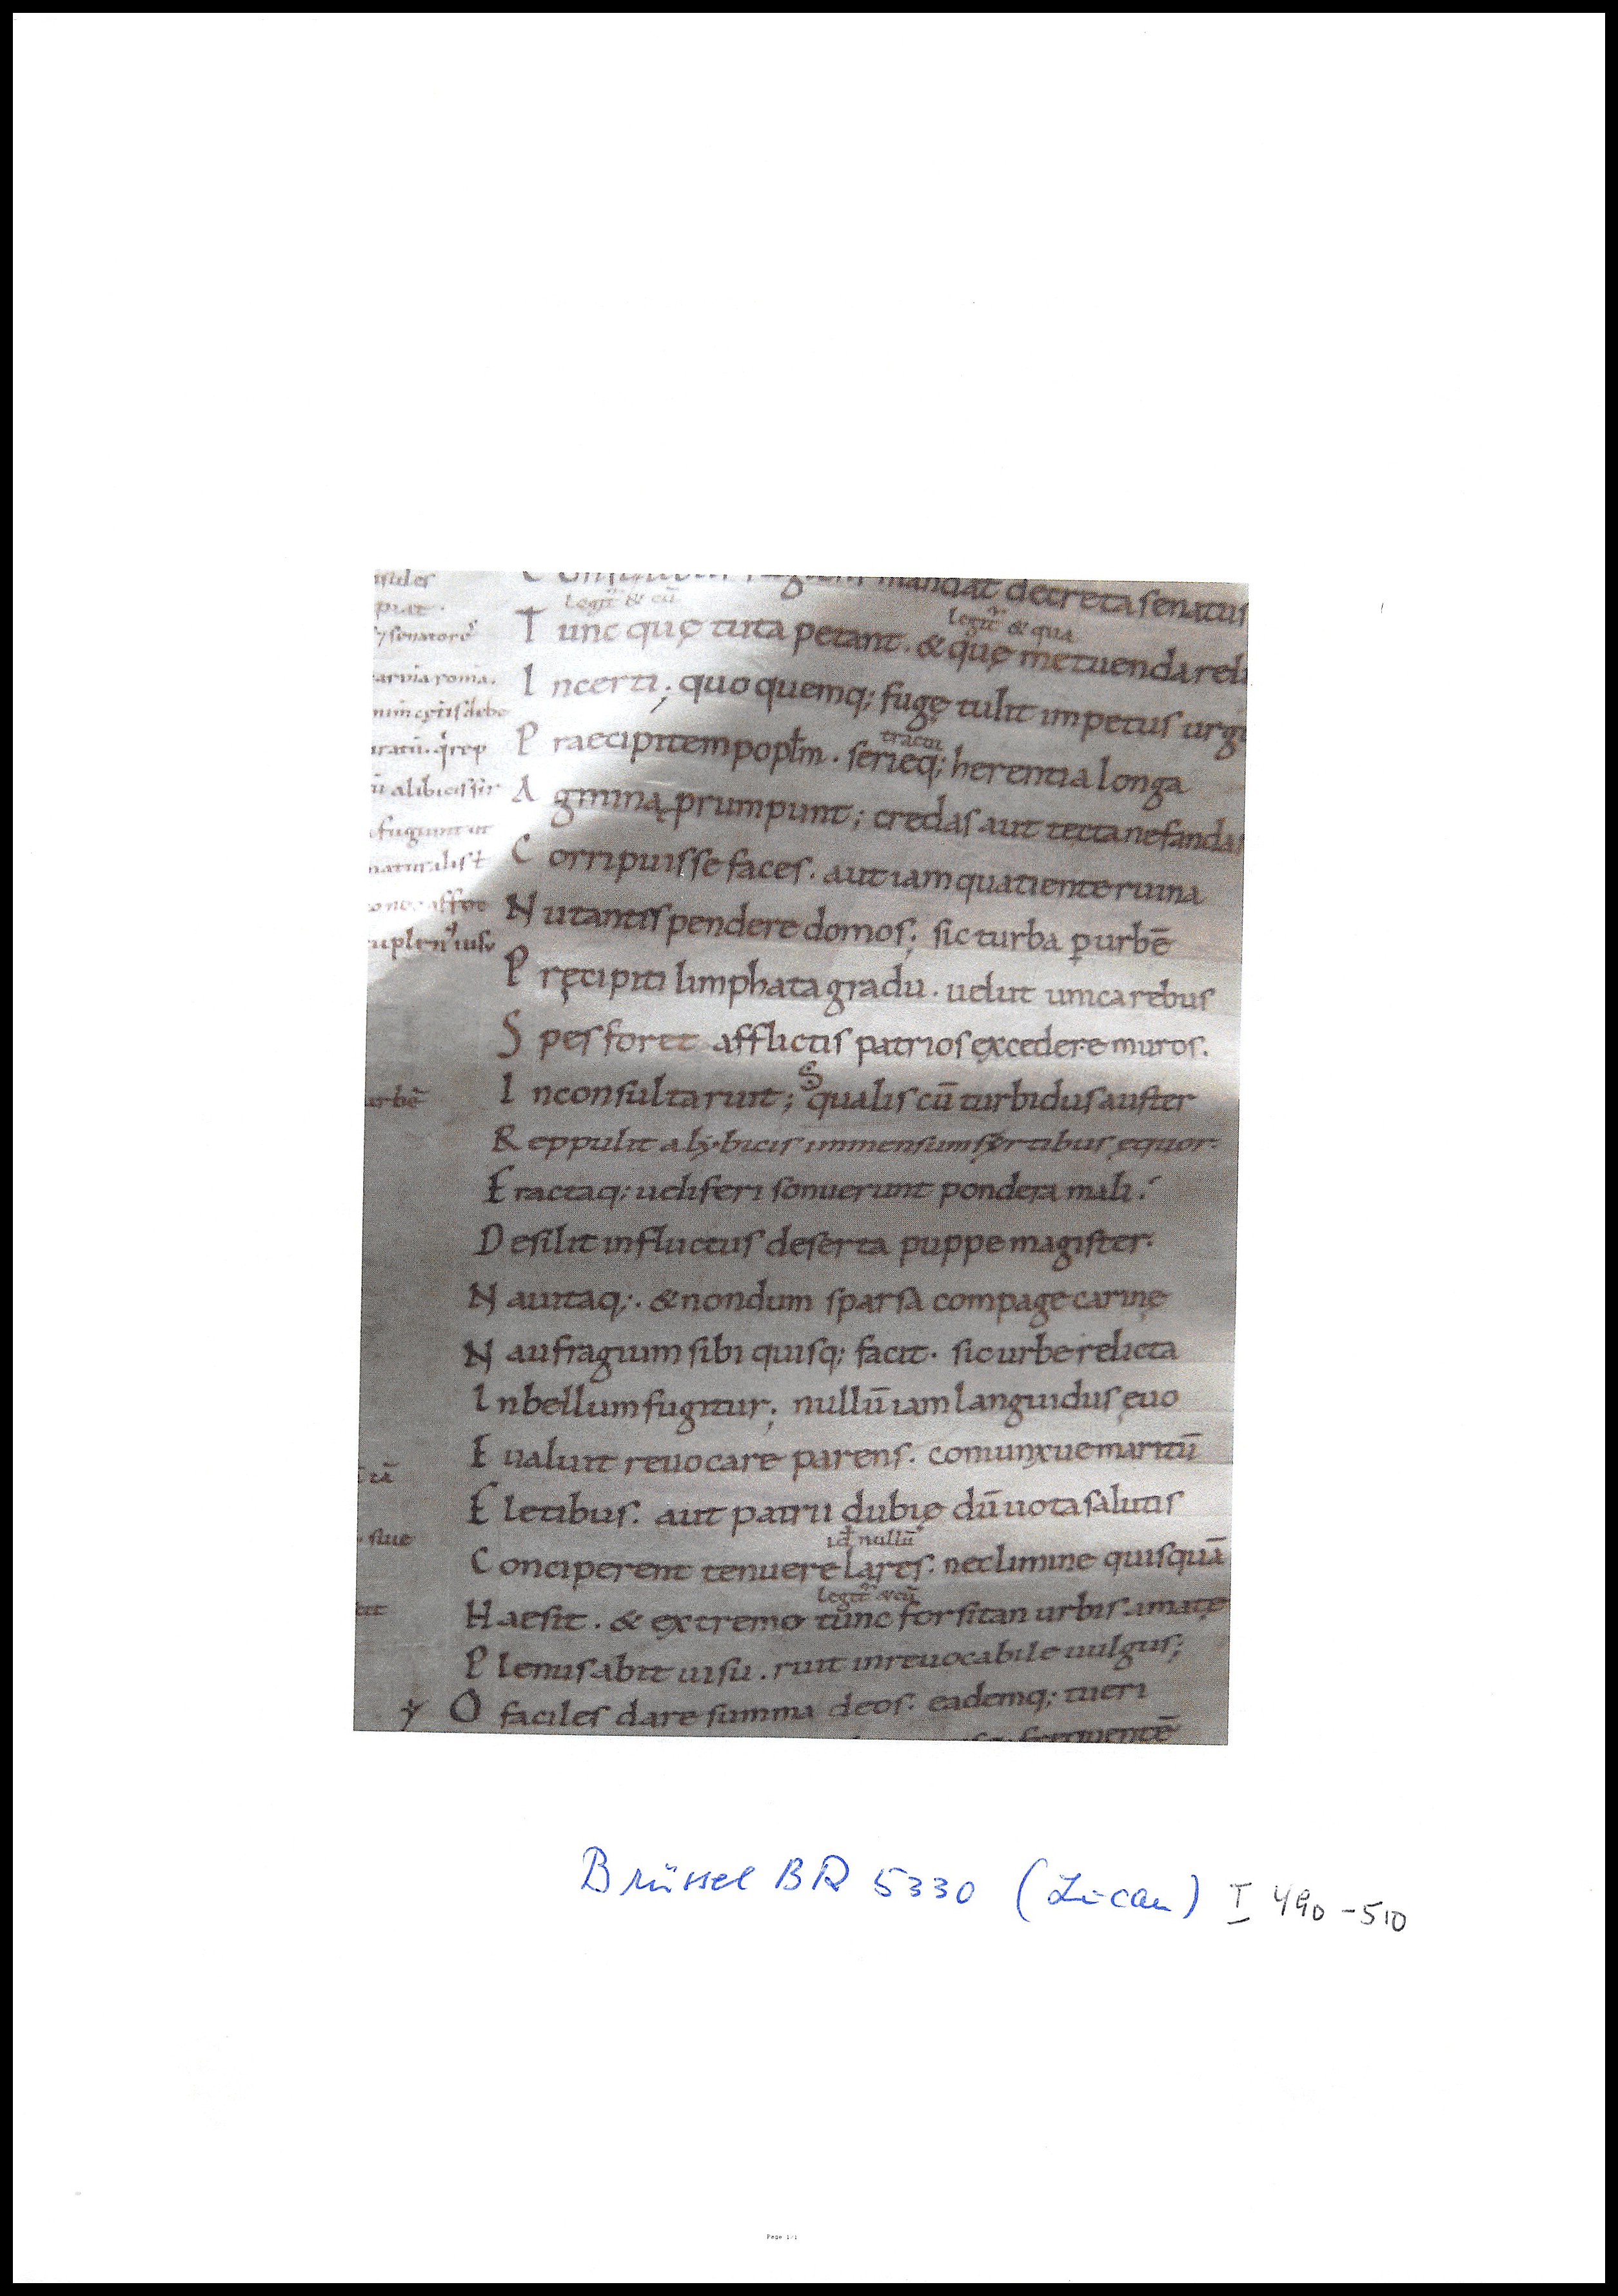 mandat decreta senatus
Legit͛ & cū
legit͛ & qua
T unc quę tuta petant . & quę metuenda reli
I ncerti ; quo quemq; fugę tulit impetus urgu
tractū
P raecipitem popłm . serieq; herentia longa
A gmina prumpunt ; credas aut tecta nefandas
C orripuisse faces . aut iam quatiente ruina
N utantis pendere domos ; sic turba ꝑ urbē
P ręcipiti limphata gradu . uelut unica rebus
S pes foret afflictis patrios excedere muros .
I nconsulta ruit ; qualis cū turbidus auster
R eppulit a lẏbicis immensum syrtibus ęquor .
F ractaq; ueliferi sonuerunt pondera mali .
D esilit in fluctus deserta puppe magister .
N auitaq; . & nondum sparsa compage carinę
N aufragium sibi quisq; facit . sic urbe relicta
I n bellum fugitur ; nullū iam languidus ęuo
E ualuit reuocare parens . coniunxue maritū
F letibus . aut patrii dubię dū uota salutis
id nullū
C onciperent tenuere lares . nec limine quisquā
legit͛ & cū
H aesit . & extremo tunc forsitan urbis amatę
P lenus abit uisu . ruit inreuocabile uulgus ;
O faciles dare summa deos . eademq; tueri
frequentē
isules
piat .
ar via roma .
fugiunt ut
urbē
siue
Brüssel BR 5330 (Lucan) I 490-510
Page 1/1